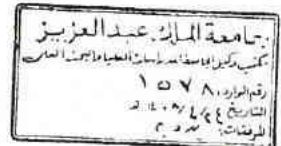 جامعة الملك عبد العزيز
مكتب وكيل الجامعة للدراسات العليا والبحث العلمي
رقم الوارد: ١٥٧٨
التاريخ ٢٤/٤/١٤٠٨ هـ
المرفقات: